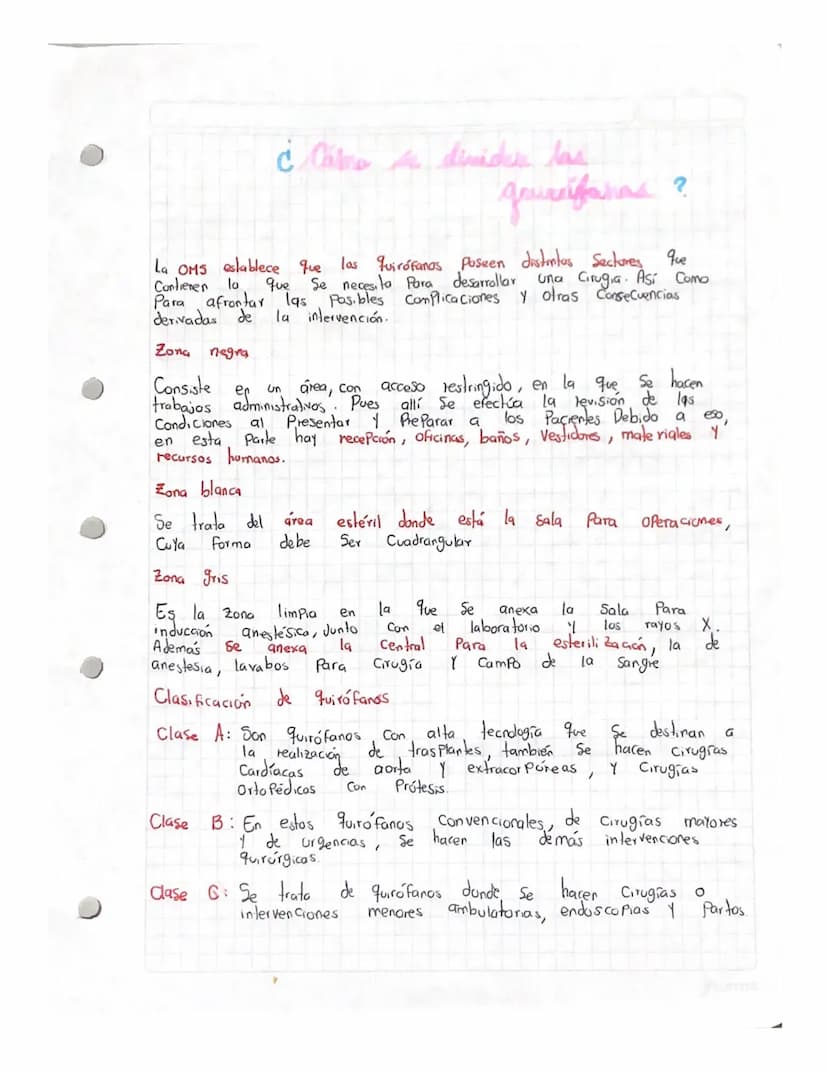 ¿ Cómo se dividen los
quirófanos ?
La OMS establece que los quirófanos poseen distintos Sectores que
Contienen lo que Se necesita Para desarrollar una Cirugía. Así Como
Para afrontar las Posibles Complicaciones y otras Consecuencias
derivadas de la intervención.
Zona negra
Consiste en un área, con acceso restringido, en la que Se hacen
trabajos administrativos. Pues allí Se efectúa la revisión de las
Condiciones al Presentar y Preparar a los Pacientes Debido a eso,
en esta Parte hay recepción, oficinas, baños, Vestidores, materiales y
recursos humanos.
Zona blanca
Se trata del área estéril donde está la Sala Para operaciones,
Cuya Forma debe Ser Cuadrangular
Zona gris
Es la zona limpia en la que Se anexa la Sala Para
inducción anestésica, Junto Con el laboratorio y los rayos X.
Además Se anexa la Central Para la esterilización, la de
anestesia, lavabos Para Cirugía y Campo de la Sangre
Clasificación de quirófanos
Clase A: Son quirófanos Con alta tecnología que Se destinan a
la realización de trasplantes, también Se hacen Cirugías
Cardíacas de aorta y extracorpóreas, y Cirugías
Ortopédicos Con Prótesis.
Clase B: En estos quirófanos Convencionales, de Cirugías mayores
y de urgencias, Se hacen las demás intervenciones
quirúrgicos.
Clase C: Se trata de quirófanos donde Se hacen Cirugías o
intervenciones menores ambulatorias, endoscopias y Partos